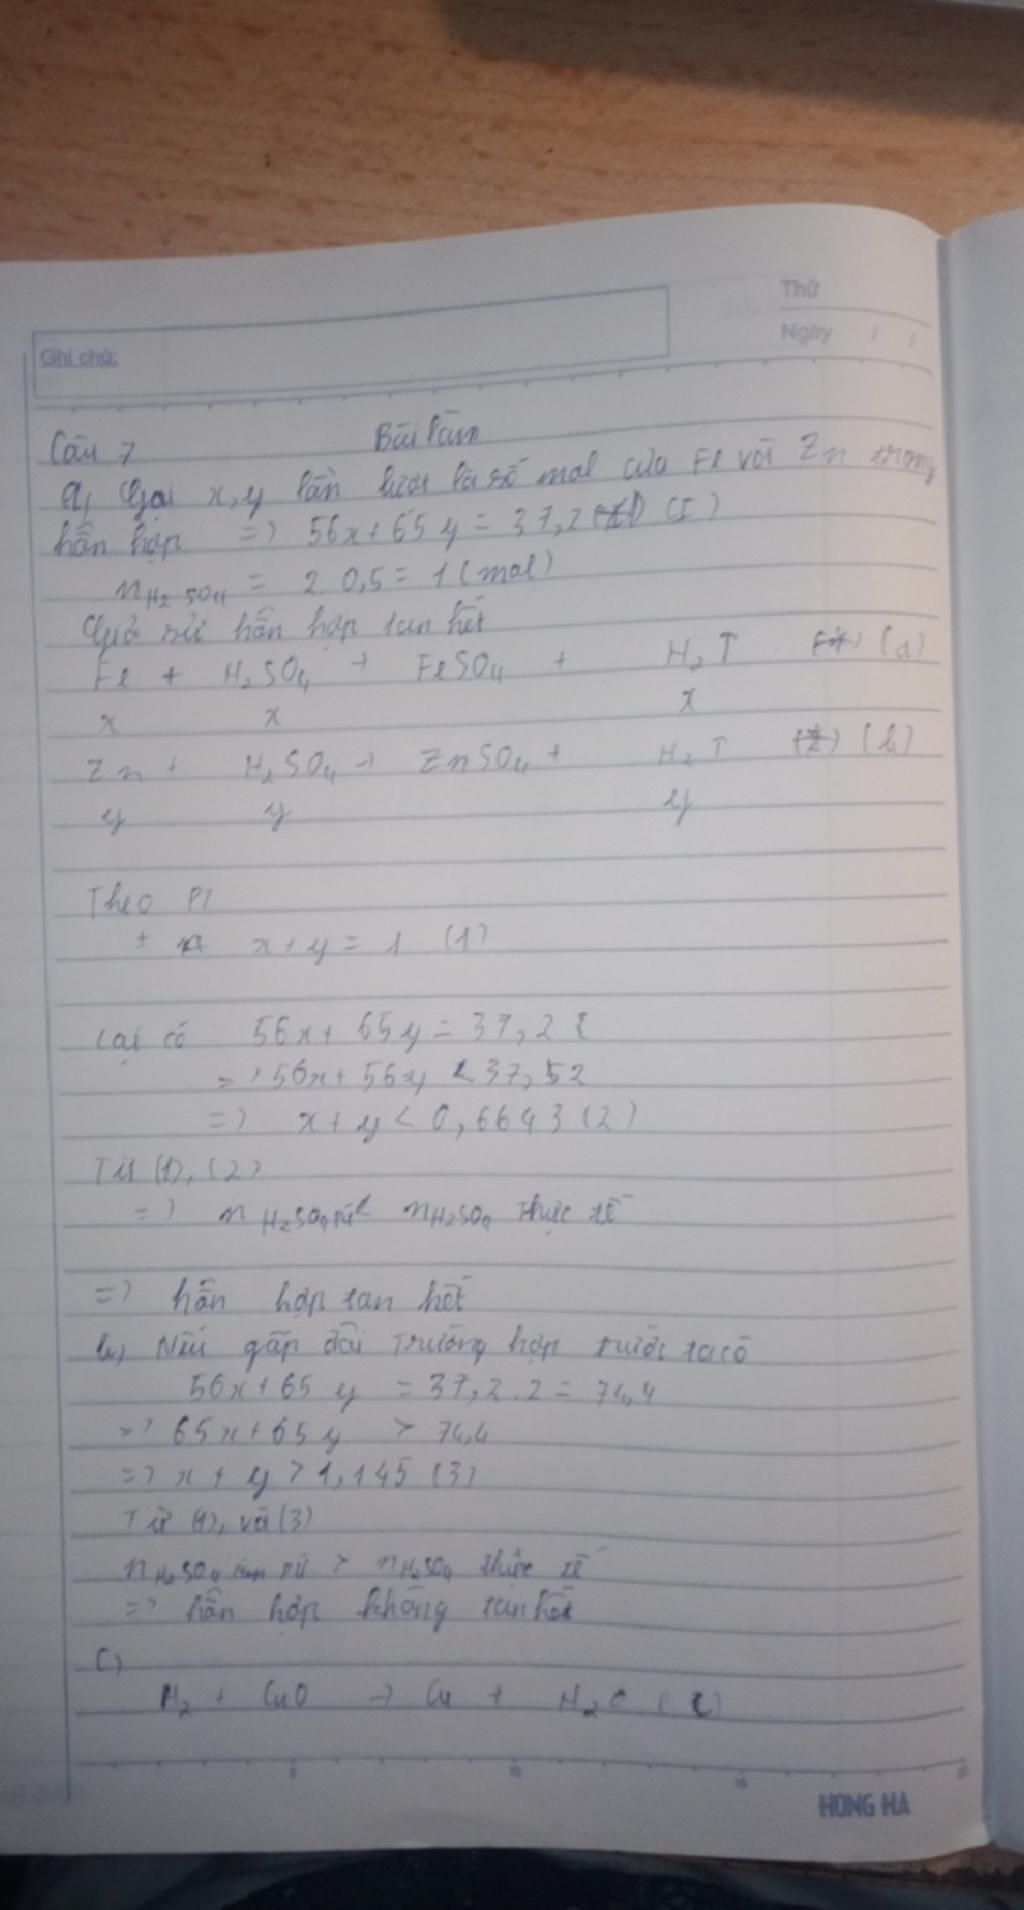 Thứ
Ngày / /
Ghi chú:
Câu 7 Bài làm
a, Gọi x, y lần lượt là số mol của Fe với Zn trong
hỗn hợp => 56x + 65y = 37,2 (I)
nH2SO4 = 2.0,5 = 1 (mol)
Giả sử hỗn hợp tan hết
Fe + H2SO4 → FeSO4 + H2↑ (a)
x x x
Zn + H2SO4 → ZnSO4 + H2↑ (b)
y y y
Theo PT
x + y = 1 (1)
Lại có 56x + 65y = 37,2
=> 56x + 56y < 37,52
=> x + y < 0,6643 (2)
Từ (1), (2)
=> nH2SO4 pứ < nH2SO4 Thực tế
=> hỗn hợp tan hết
b, Nếu gấp đôi Trường hợp trước ta có
56x + 65y = 37,2.2 = 74,4
=> 65x + 65y > 74,4
=> x + y > 1,145 (3)
Từ (1), và (3)
nH2SO4 pứ > nH2SO4 thực tế
=> hỗn hợp không tan hết
c)
H2 + CuO → Cu + H2O (c)
5 10 15 20
HONG HA